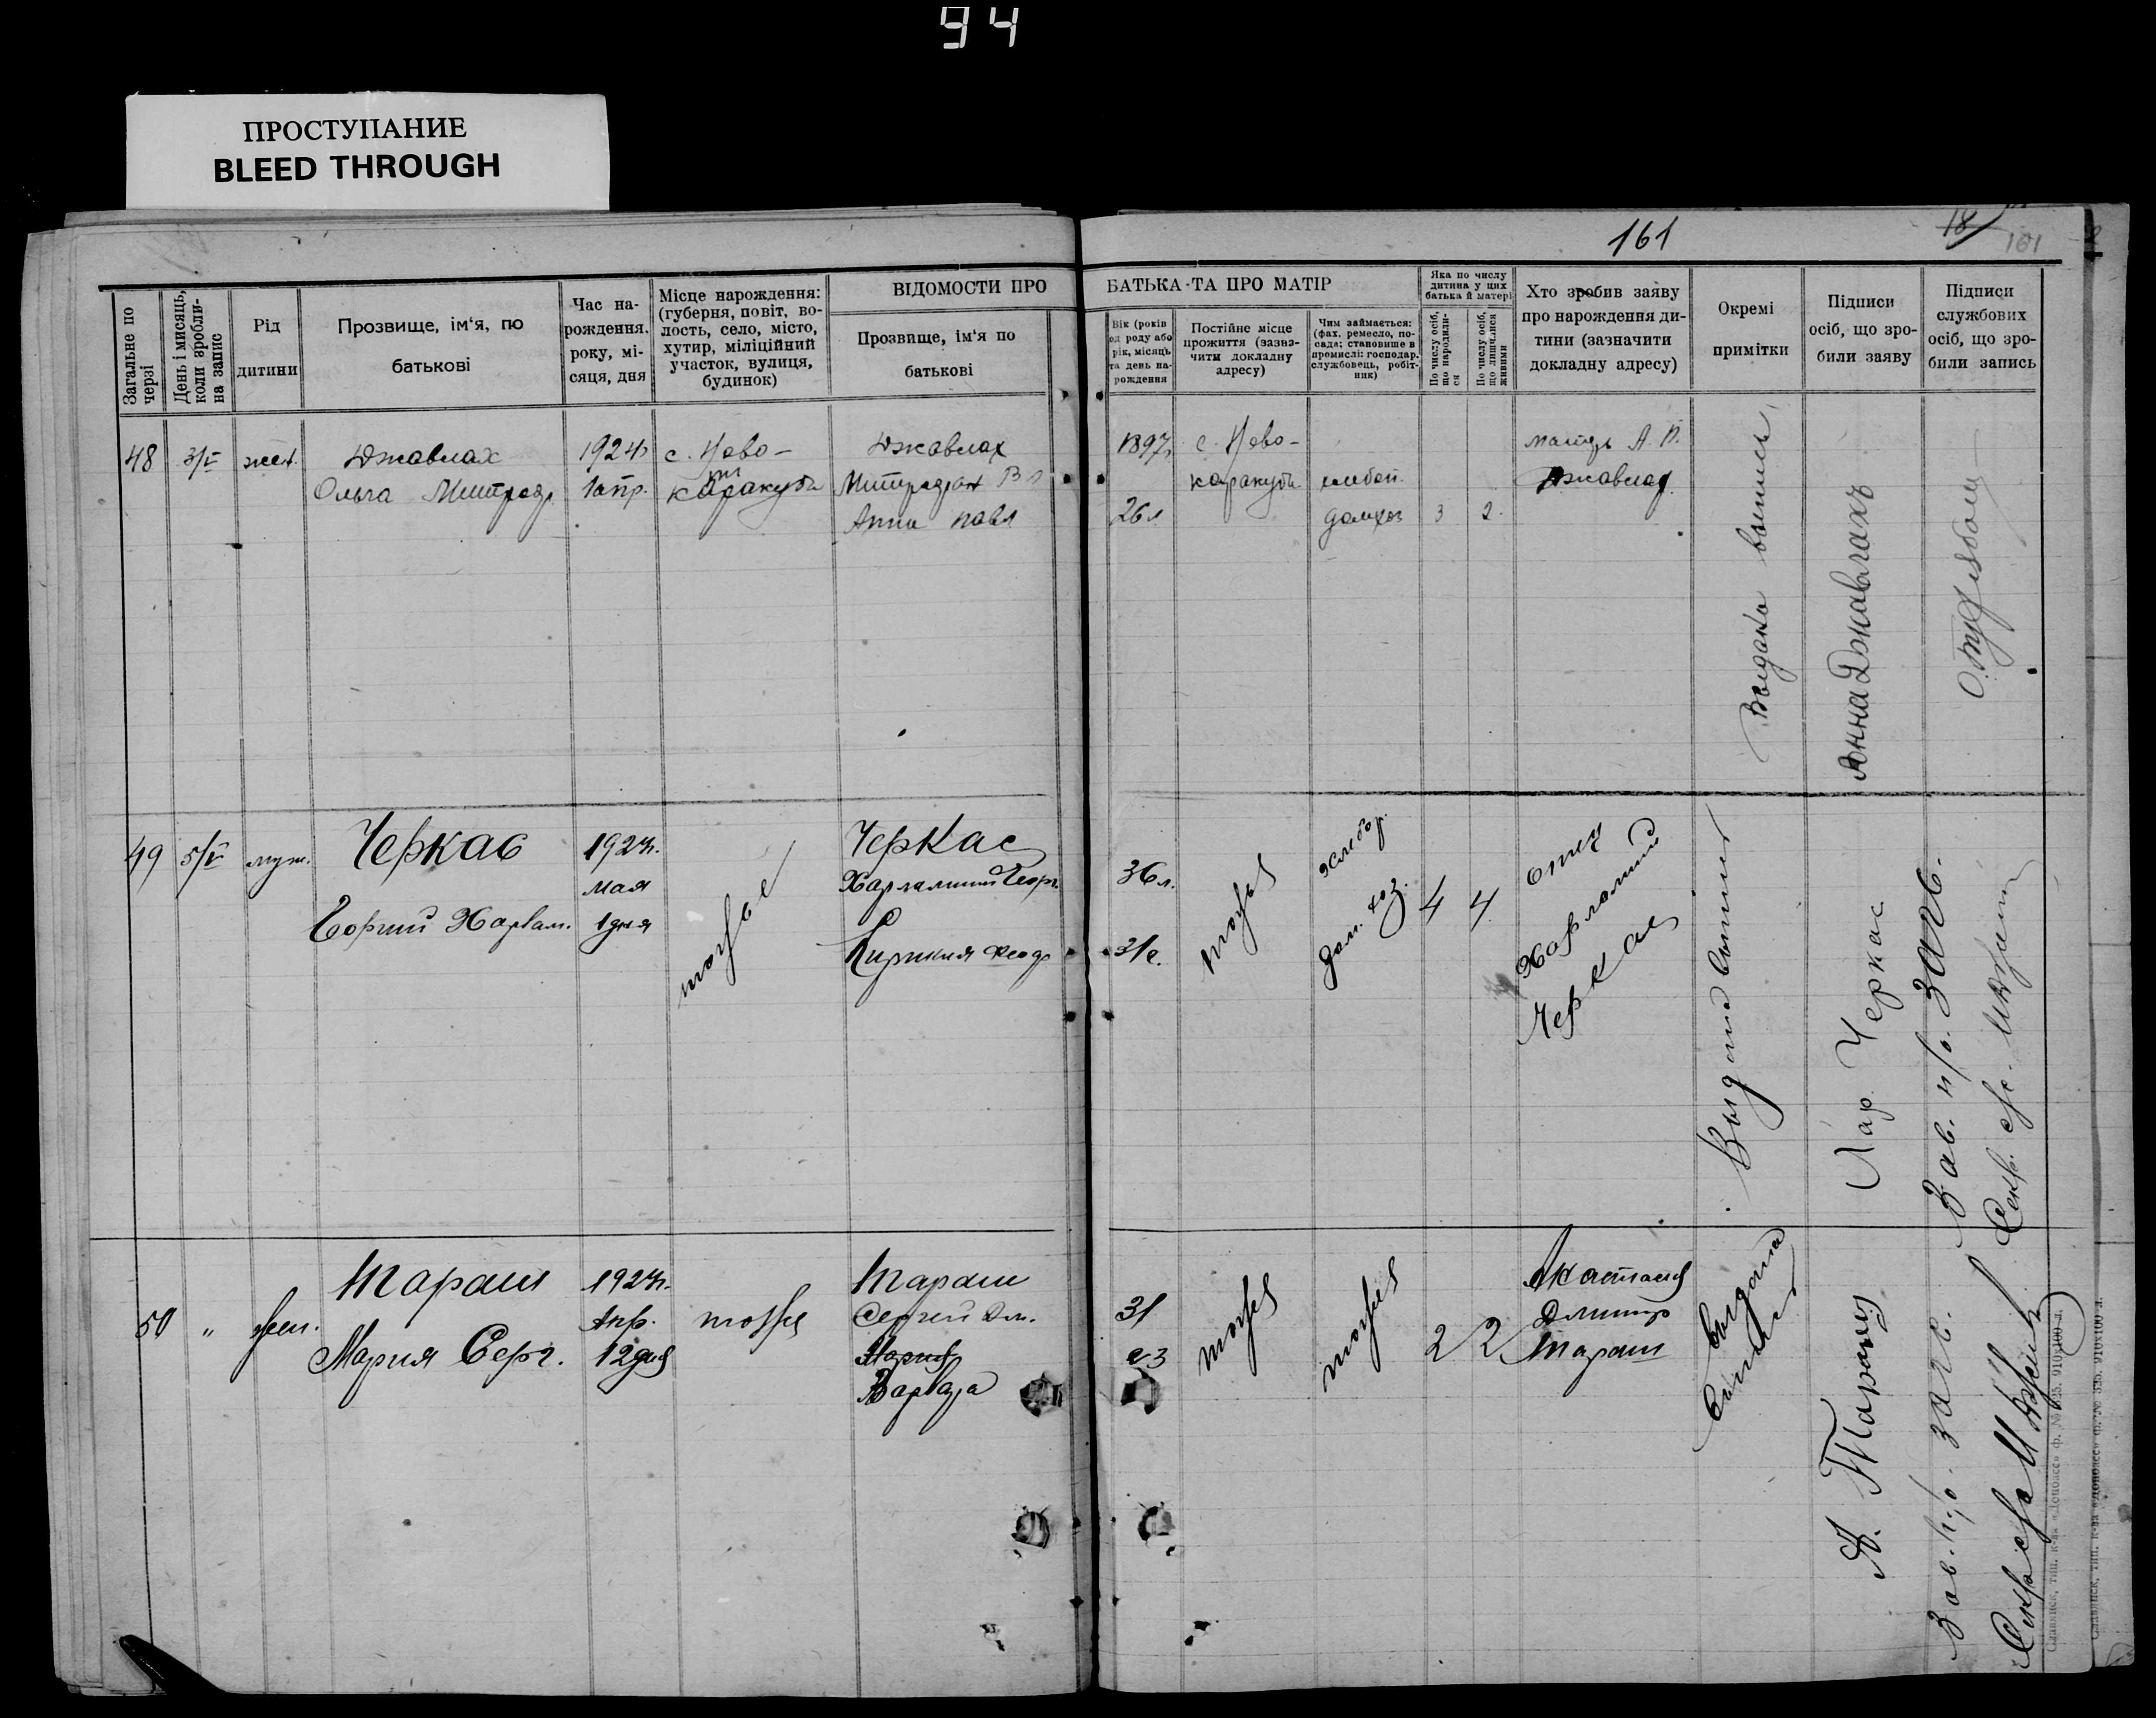 94
ПРОСТУПАНИЕ
BLEED THROUGH
161
18
161
Загальне по черзі
День і мисяць, коли зробили на запис
Рід дитини
Прозвище, ім‘я, по батькові
Час нарождення. року, місяця, дня
Місце нарождення: (губерня, повіт, волость, село, місто, хутир, міліційний участок, вулиця, будинок)
ВІДОМОСТИ ПРО БАТЬКА ТА ПРО МАТІР
Прозвище, ім‘я по батькові
Вік (років од роду або рік, місяць та день нарождення
Постійне місце прожиття (зазначити докладну адресу)
Чим займається: (фах, ремесло, посада; становище в промислі: господар, службовець, робітник)
Яка по числу дитина у цих батька й матері
По числу осіб, що народилися
По числу осіб, що лишилися живими
Хто зробив заяву про нарождення дитини (зазначити докладну адресу)
Окремі примітки
Підписи осіб, що зробили заяву
Підписи службових осіб, що зробили запись
48
3/V
жен.
Джавлах
Ольга Митрофр
1924г
1апр.
с. Ново-
каракуба
Джавлах
Митрофан Вл
Анна павл
1897г
26л
с. Ново-
каракуба
хлебоп.
домхоз
3
2
матерь А. П.
Джавлах
Выдана выпись
Анна Джавлахъ
49
5/V
муж.
Черкас
Георгий Харлам.
1924г.
мая
1дня
тоже
Черкас
Харлампий Георг.
Кирикия Феод
36л.
31л.
тоже
хлебор.
дом. хоз.
4
4
отец
Харлампий
Черкас
Выдана выпись
Хар. Черкас
Зав. п/о. ЗАГС.
Секр.
50
"
жен.
Тараш
Мария Серг.
1924г.
Апр.
12дня
тоже
Тараш
Сергей Дм.
Мария
Варвара
31
23
тоже
тоже
2
2
Анастасия
Дмитр
Тараш
Выдана
выпись
А. Тараш
Зав. п/о. загс.
Славянск, тип. к-ва «Донбасс» ф. № 335. 910х100 л.
Славянск, тип. к-ва «Донбасс» ф. № 335. 910х100 л.